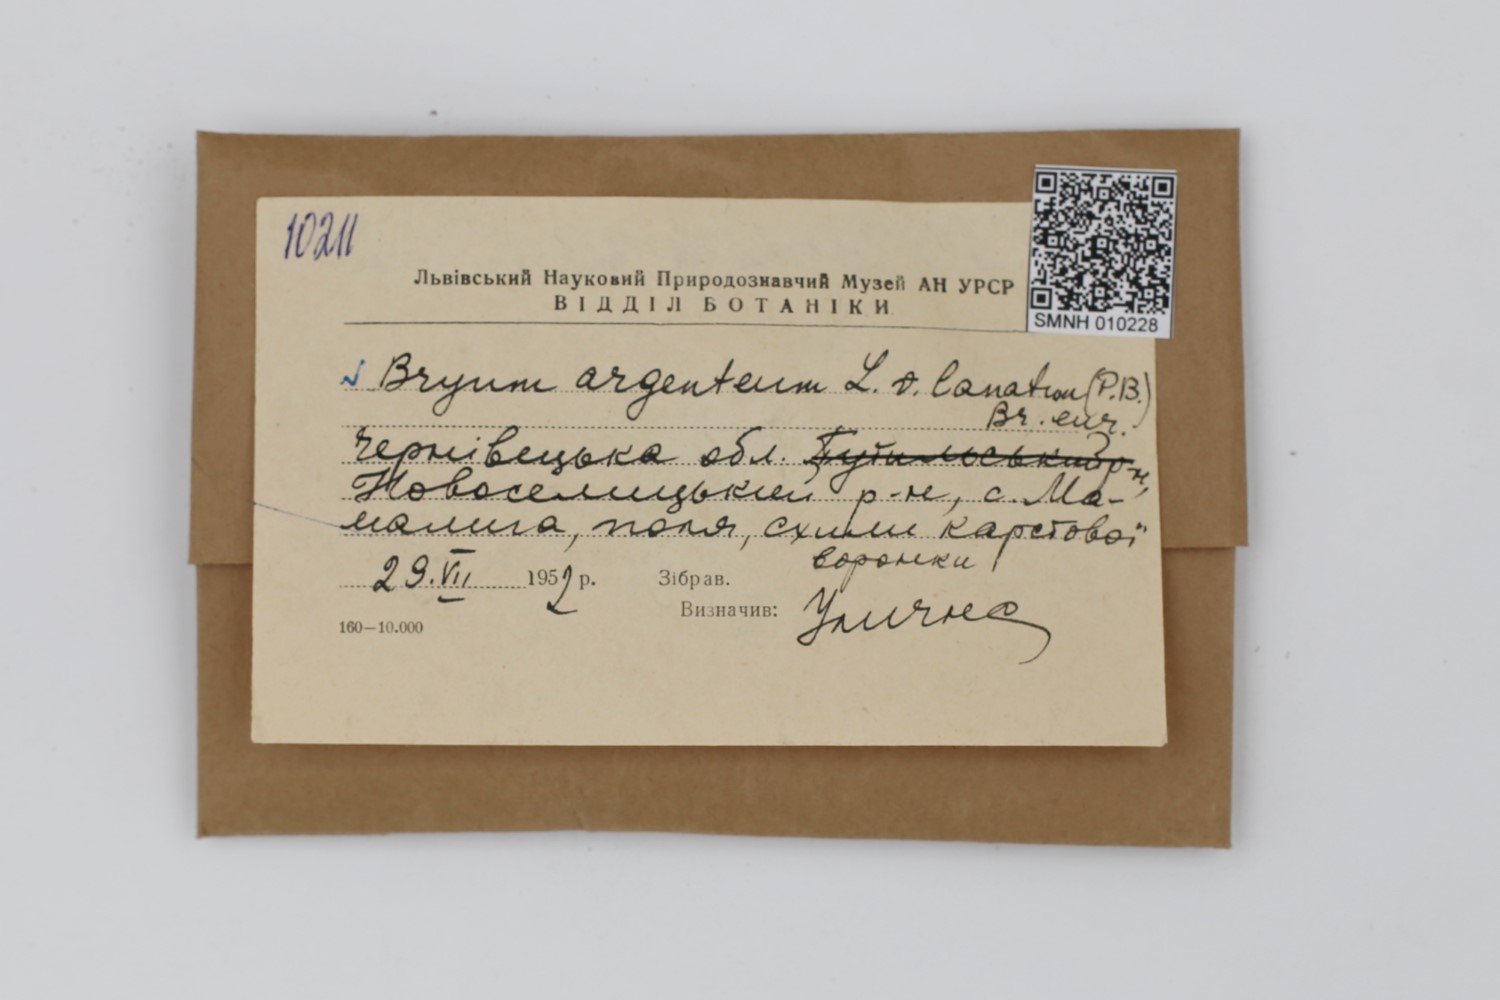 10211
Львівський Науковий Природознавчий Музей АН УРСР
ВІДДІЛ БОТАНІКИ
SMNH 010228
Bryum argenteum L. v. lanatum (P.B.)
Br. eur.
Чернівецька обл. Путильський р-н,
Новоселицький р-н, с. Ма-
малига, поля, схили карстової
воронки
29.VII 1952 р. Зібрав.
Визначив: Улична
160—10.000